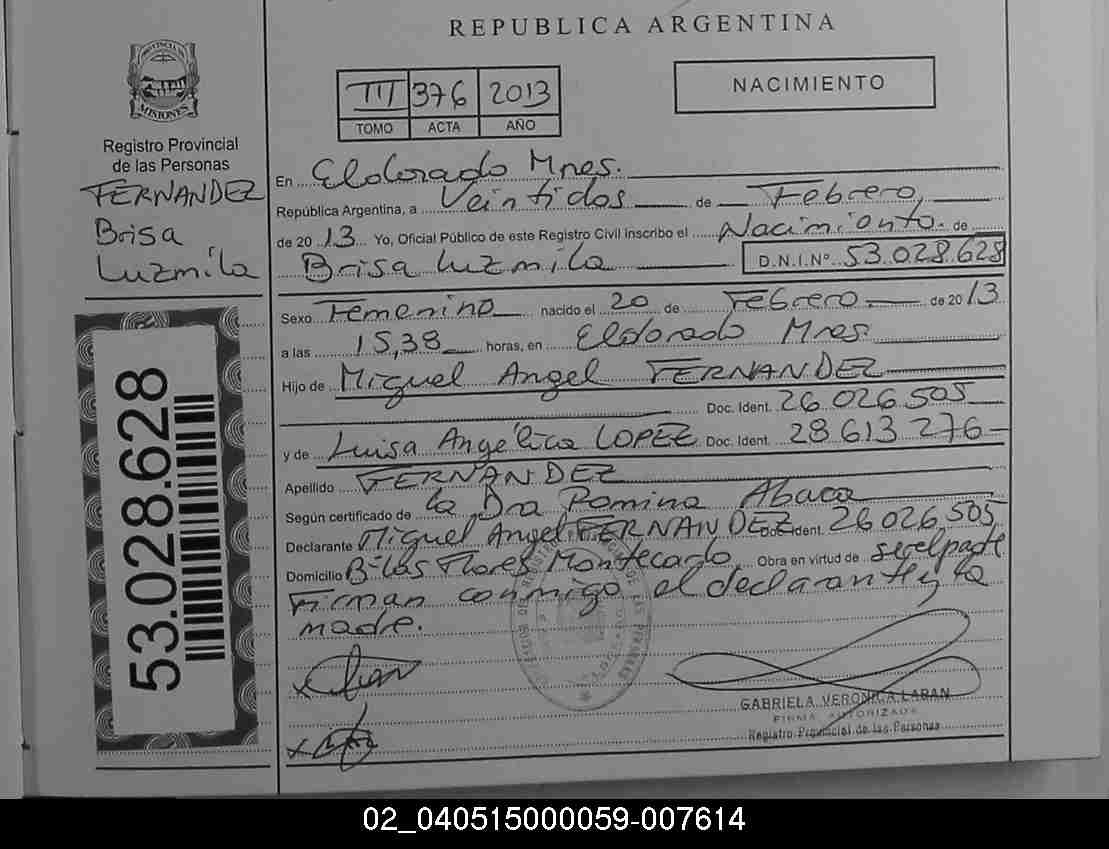 REPUBLICA ARGENTINA
PROVINCIA DE
MISIONES
Registro Provincial
de las Personas
FERNANDEZ
Brisa
Luzmila
53.028.628
III 376 2013
TOMO ACTA AÑO
NACIMIENTO
En Eldorado Mnes.
República Argentina, a Veintidos de Febrero
de 2013 Yo, Oficial Público de este Registro Civil inscribo el Nacimiento de
Brisa Luzmila D.N.I.Nº 53.028.628
Sexo Femenino nacido el 20 de Febrero de 2013
a las 15,38 horas, en Eldorado Mnes.
Hijo de Miguel Angel FERNANDEZ
Doc. Ident. 26 026 505
y de Luisa Angélica LOPEZ Doc. Ident. 28 613 276
Apellido FERNANDEZ
Según certificado de la Dra Romina Abaca
Declarante Miguel Angel FERNANDEZ Doc. Ident. 26 026,505
Domicilio B-Las Flores Montecarlo Obra en virtud de
Firman conmigo el declarante y la
madre.
GABRIELA VERONICA LABAN
FIRMA AUTORIZADA
Registro Provincial de las Personas
02_040515000059-007614